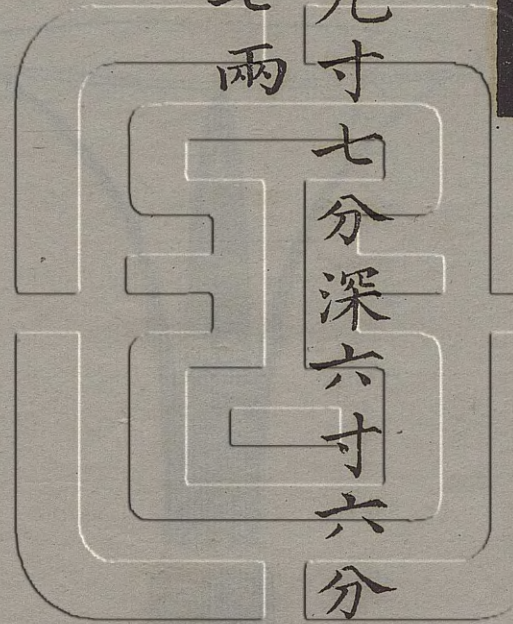 寸七分深六寸六分
兩